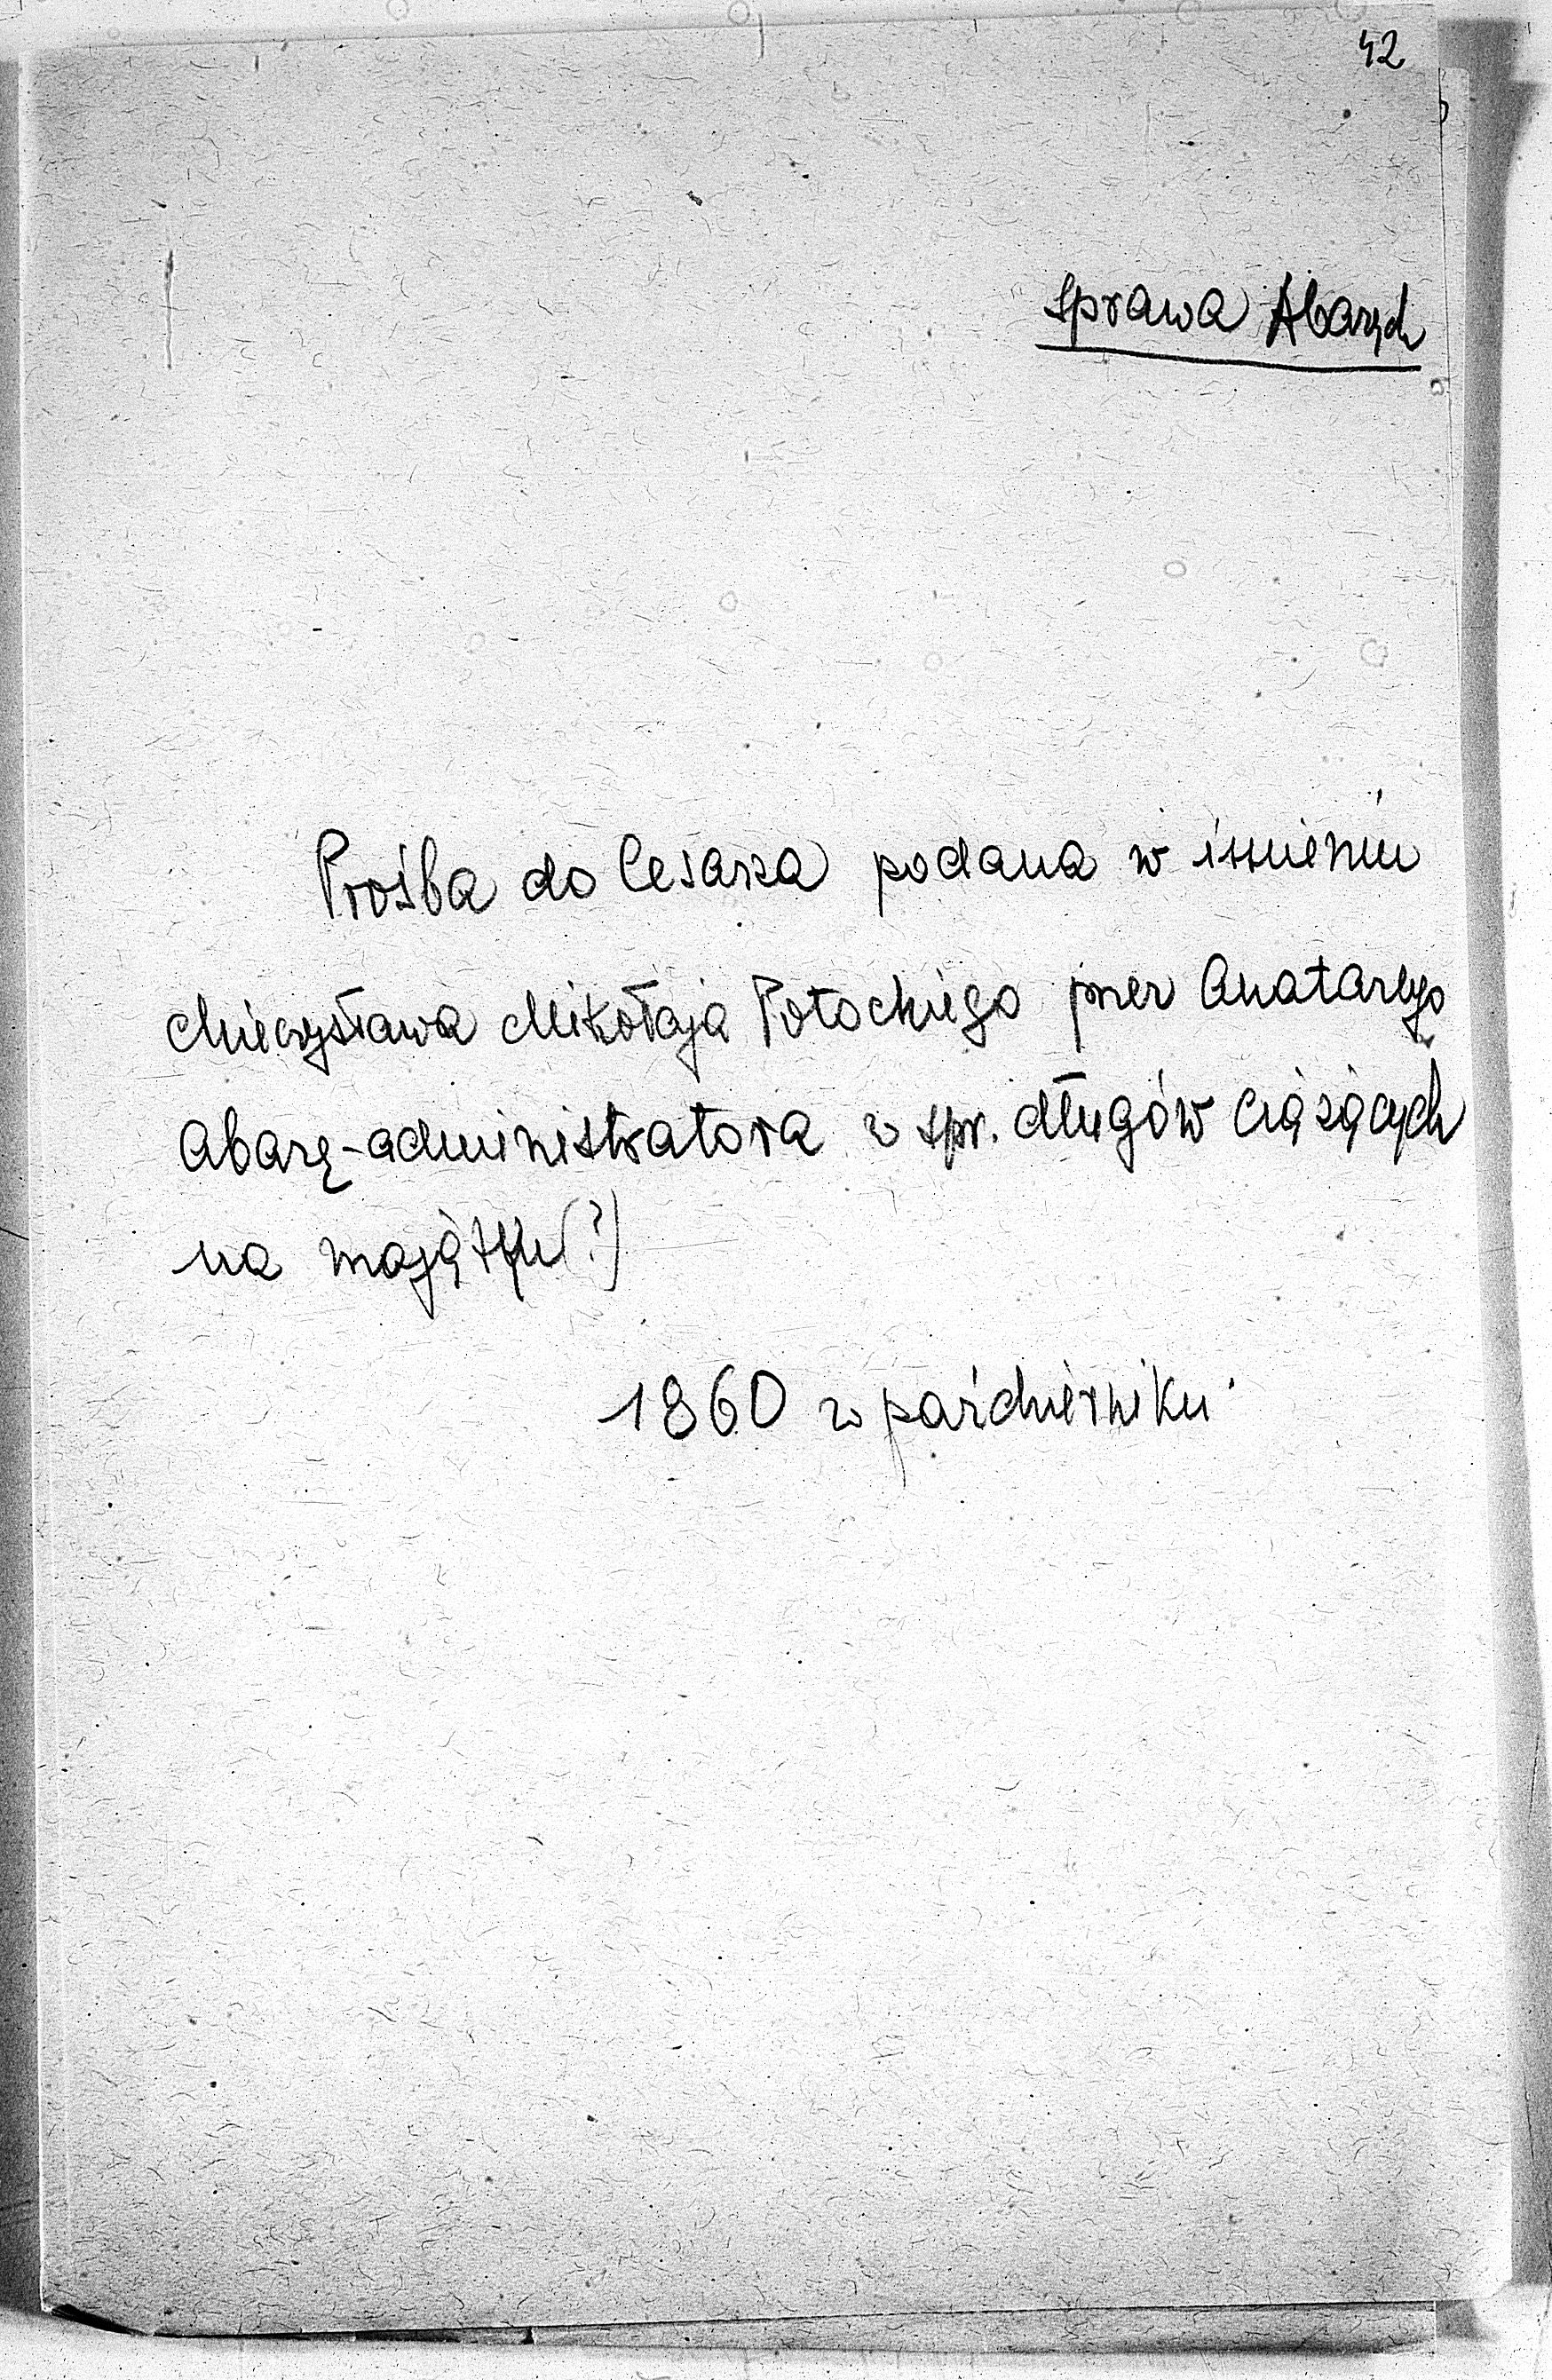 42
Sprawa Abazych
Prośba do Cesarza podana w imieniu
Mieczysława Mikołaja Potockiego przez Anatarego
Abazę-administratora w spr. długów ciążących
na majątku (?)
1860 w październiku